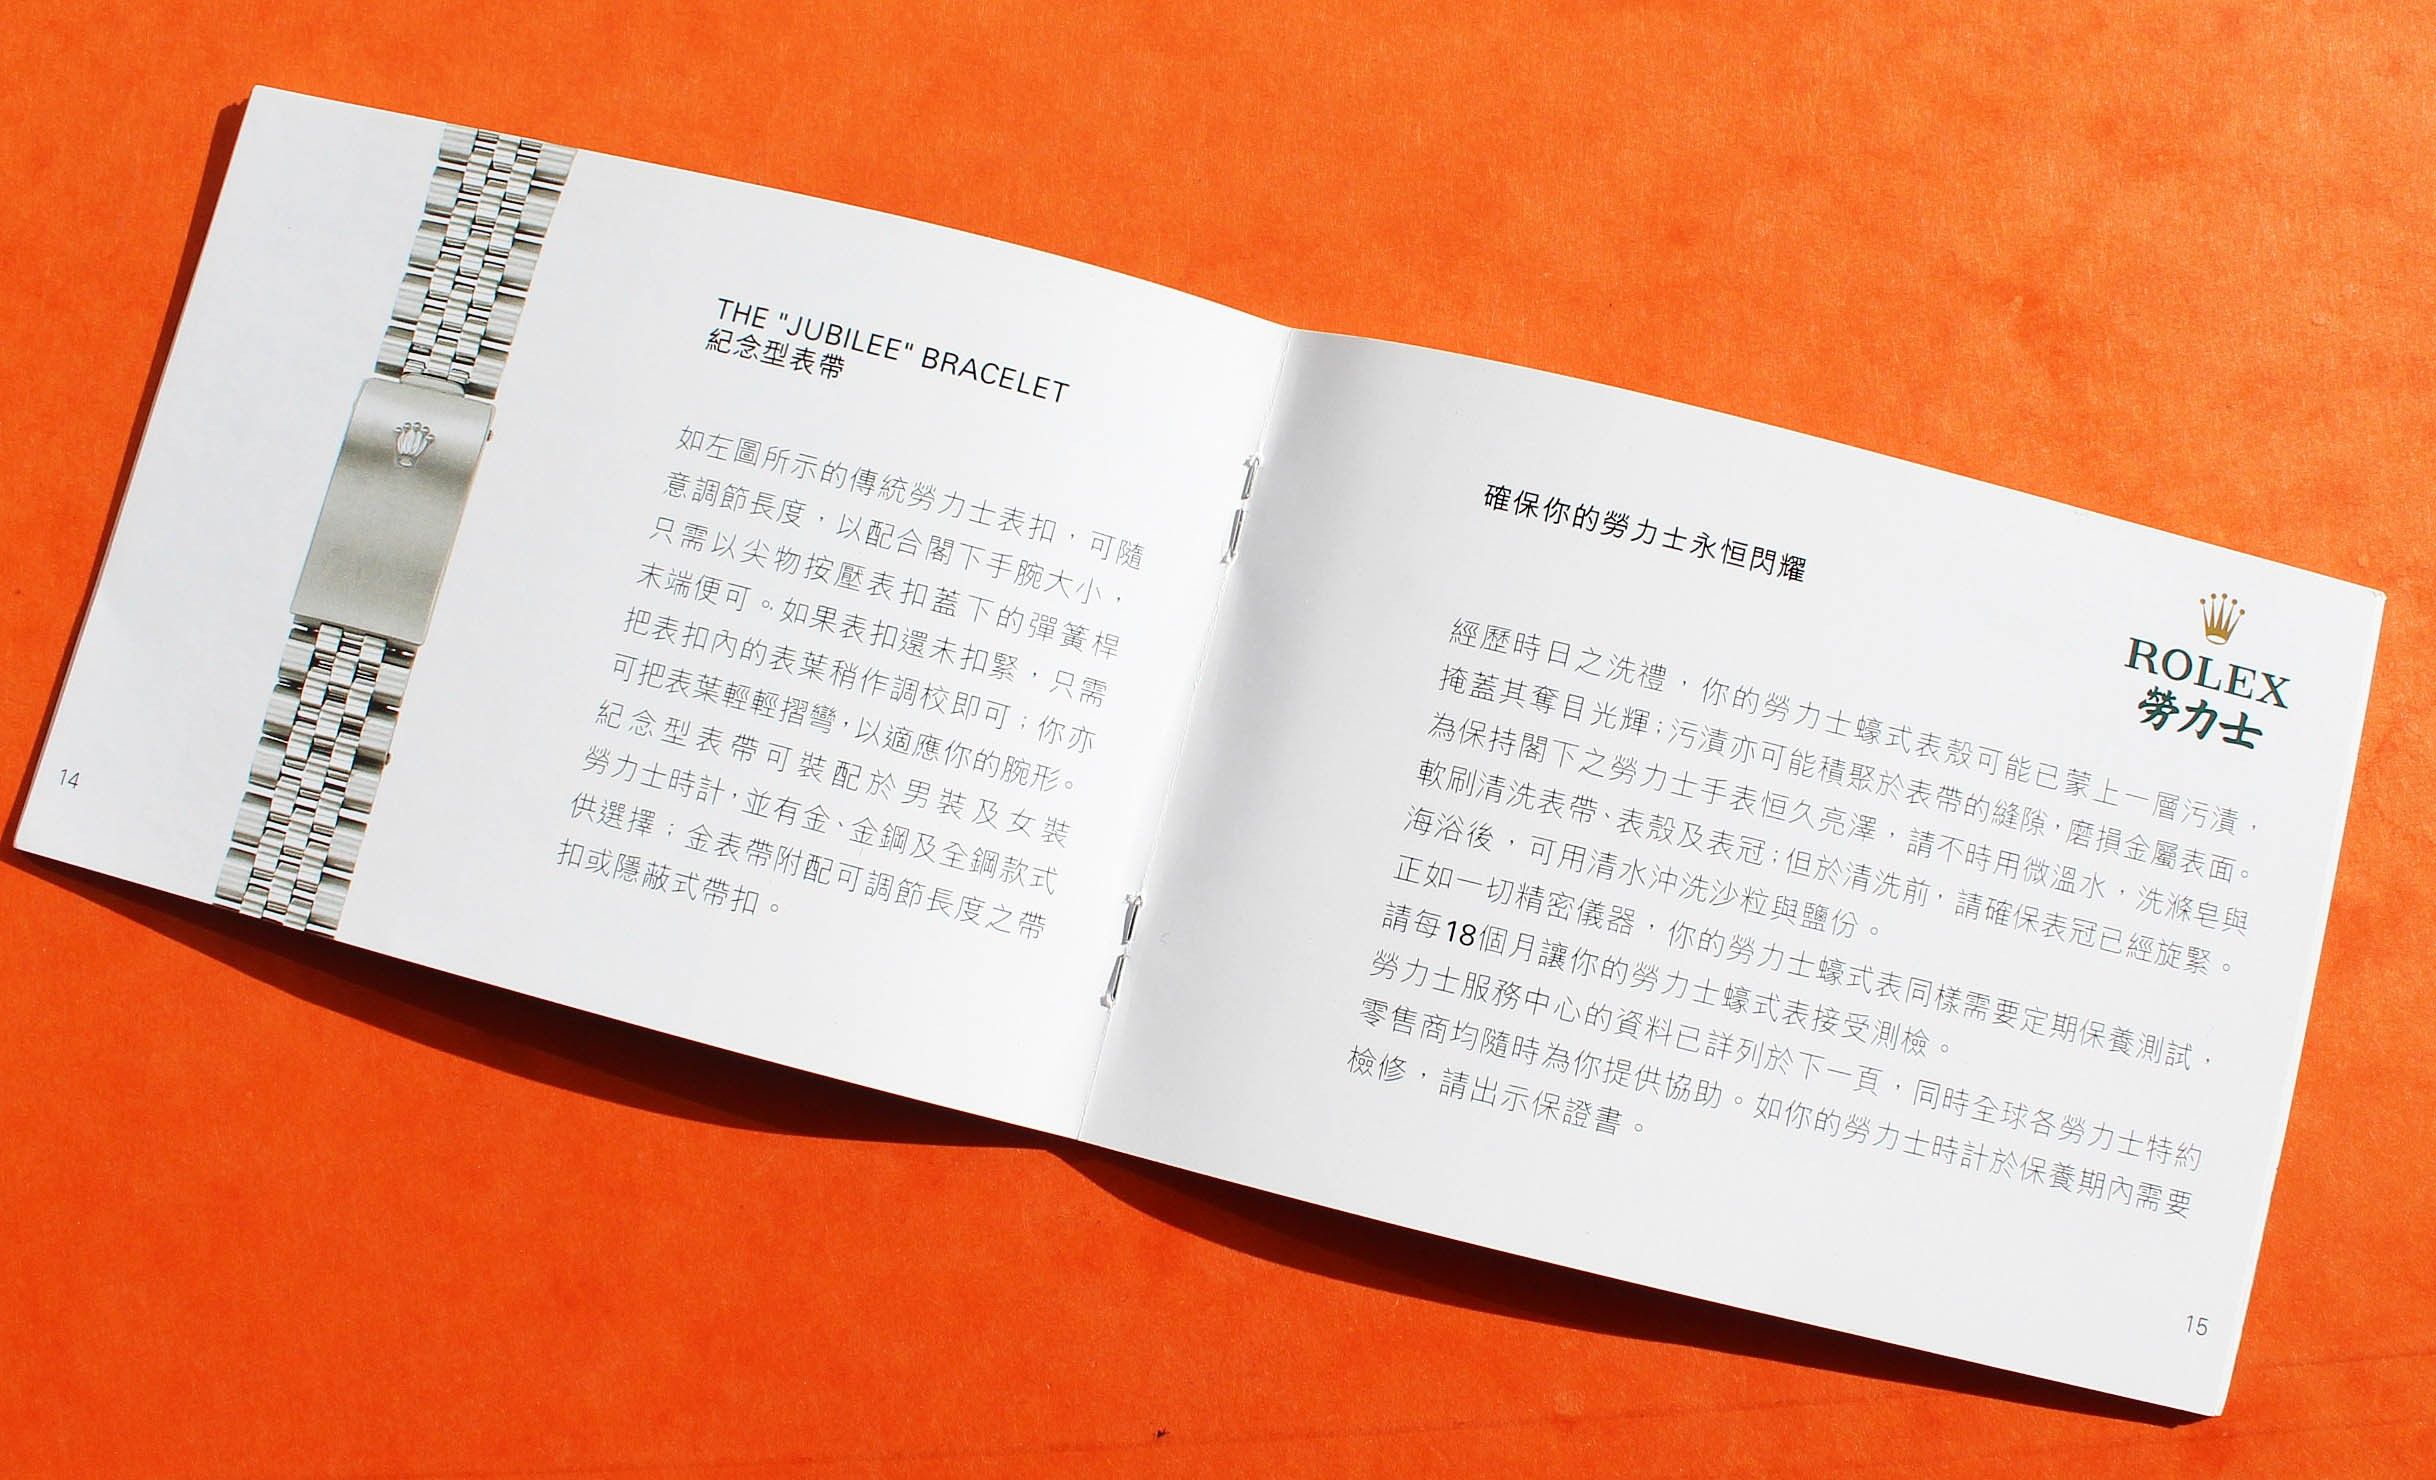 THE "JUBILEE" BRACELET
紀念型表帶
如左圖所示的傳統勞力士表扣，可隨
意調節長度，以配合閣下手腕大小，
只需以尖物按壓表扣蓋下的彈簧桿
末端便可。如果表扣還未扣緊，只需
把表扣內的表葉稍作調校即可；你亦
可把表葉輕輕摺彎，以適應你的腕形。
紀念型表帶可裝配於男裝及女裝
勞力士時計，並有金、金鋼及全鋼款式
供選擇；金表帶附配可調節長度之帶
扣或隱蔽式帶扣。
14
確保你的勞力士永恒閃耀
ROLEX
勞力士
經歷時日之洗禮，你的勞力士蠔式表殼可能已蒙上一層污漬，
掩蓋其奪目光輝；污漬亦可能積聚於表帶的縫隙，磨損金屬表面。
為保持閣下之勞力士手表恒久亮澤，請不時用微溫水，洗滌皂與
軟刷清洗表帶、表殼及表冠；但於清洗前，請確保表冠已經旋緊。
海浴後，可用清水沖洗沙粒與鹽份。
正如一切精密儀器，你的勞力士蠔式表同樣需要定期保養測試，
請每18個月讓你的勞力士蠔式表接受測檢。
勞力士服務中心的資料已詳列於下一頁，同時全球各勞力士特約
零售商均隨時為你提供協助。如你的勞力士時計於保養期內需要
檢修，請出示保證書。
15